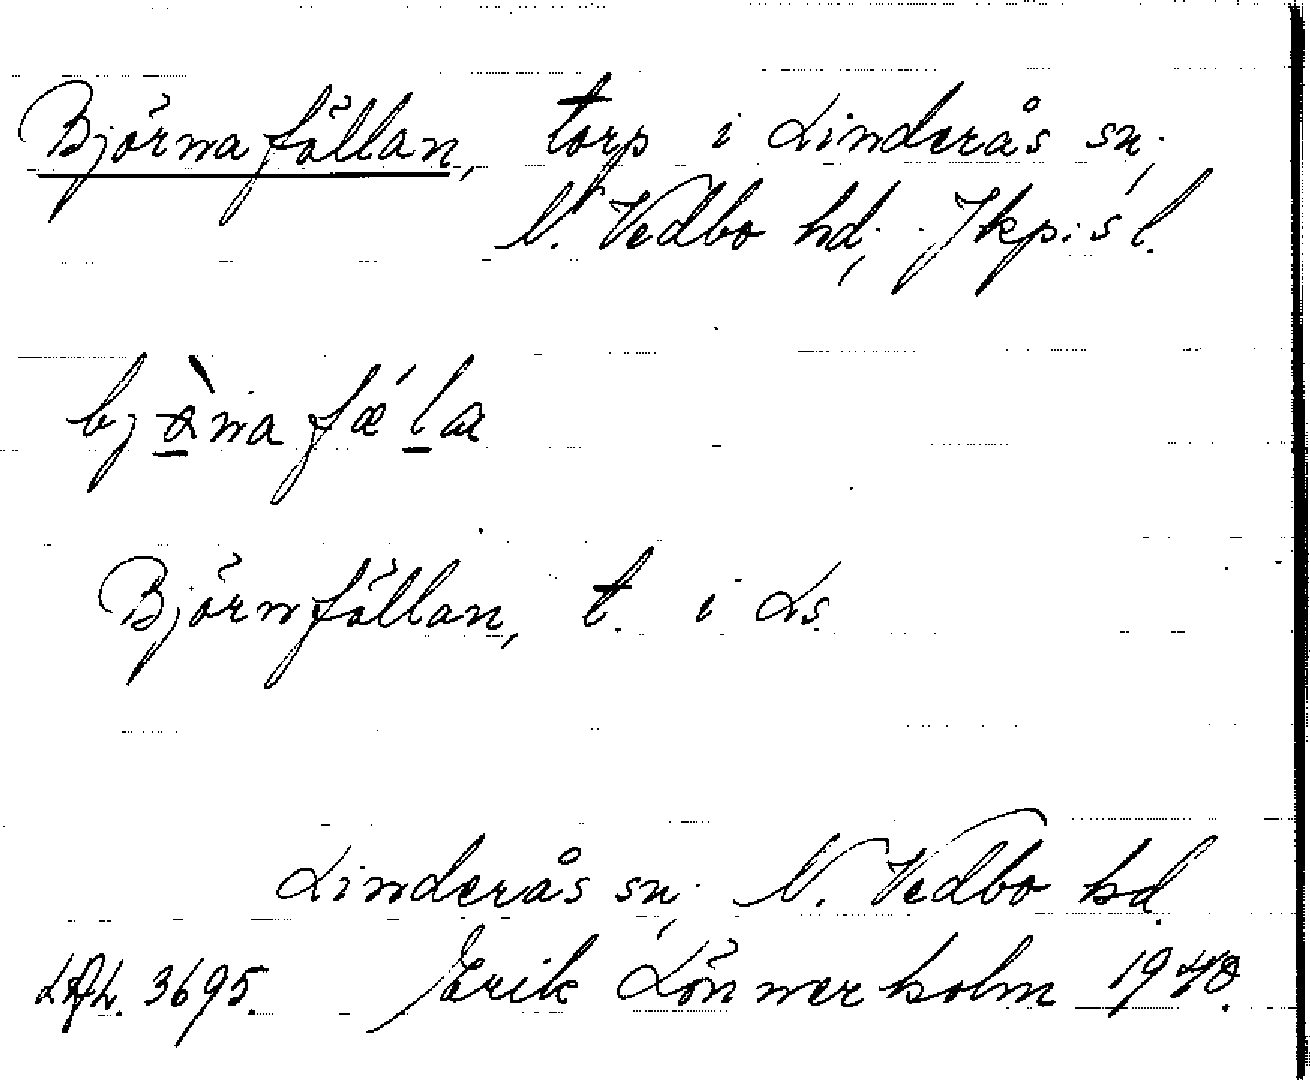 Björnafällan, torp i Linderås sn;
N. Vedbo hd; Jkp:s l.
Björnfällan, t. i Ls.
Linderås sn; N. Vedbo hd.
3695. Erik Lönnerholm 1948.